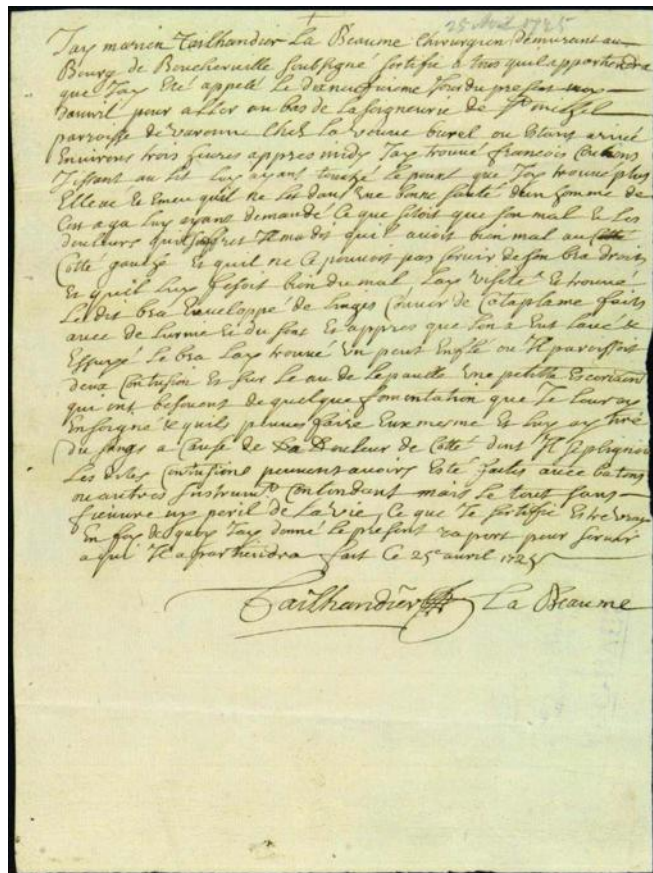 25 Avril 1725
Jay marien Tailhandier La Beaume Chirurgien demurant au
Bourg de Boucherville soubsigné sertifie a tous quil appartiendra
que Jay Eté appelé Le dixneufuieme Jour du present mois
dauril pour aller au bas de La seigneurie de St michel
parroisse de varenne Chez La veuve burel ou Estant arivé
Environs trois heures appres midy Jay trouvé francois
Jissant au lit Luy ayant touché Le pount que Jay trouvé plus
Elleué Et Emeu quil ne Lest dans Une bonne santé dun homme de
Cest aga Luy ayans demandé Ce que sétoit que son mal Et Les
douleurs quil Il ma dit quil avoit bien mal au
Cotté gauche Et quil ne Ce pouvoit pas servir de son bra droit
Et quil Luy fesoit bien du mal Lay visité Et trouvé
Le dit bra Enveloppé de Linges Couver de Cataplame faits
avec de Lurine Et du Et appres que Lon a Eut Lavé &
Essuyé Le bra Lay trouvé Un peut Enflé ou Il paroissoit
deux Contusion Et sur Le au de Lepaulle Une petitte Escorison
qui ont besouent de quelque fomentation que Je Leur ay
Ensegné & quils peuues faire Eux mesme Et Luy ay tiré
du sangs a Cause de La Douleur de Cotté dont Il seplignoit
Les dites Contusions peuuent auoirs Esté faites avec batons
ou autres Instrumts Contondant mais Le tout sans
fieuure ny peril de La vie, Ce que Je sertifie Estre vray
En foy de quoy Jay donné Le present raport pour servir
a qui Il apartiendra fait Ce 25e avril 1725
Tailhandier La Beaume